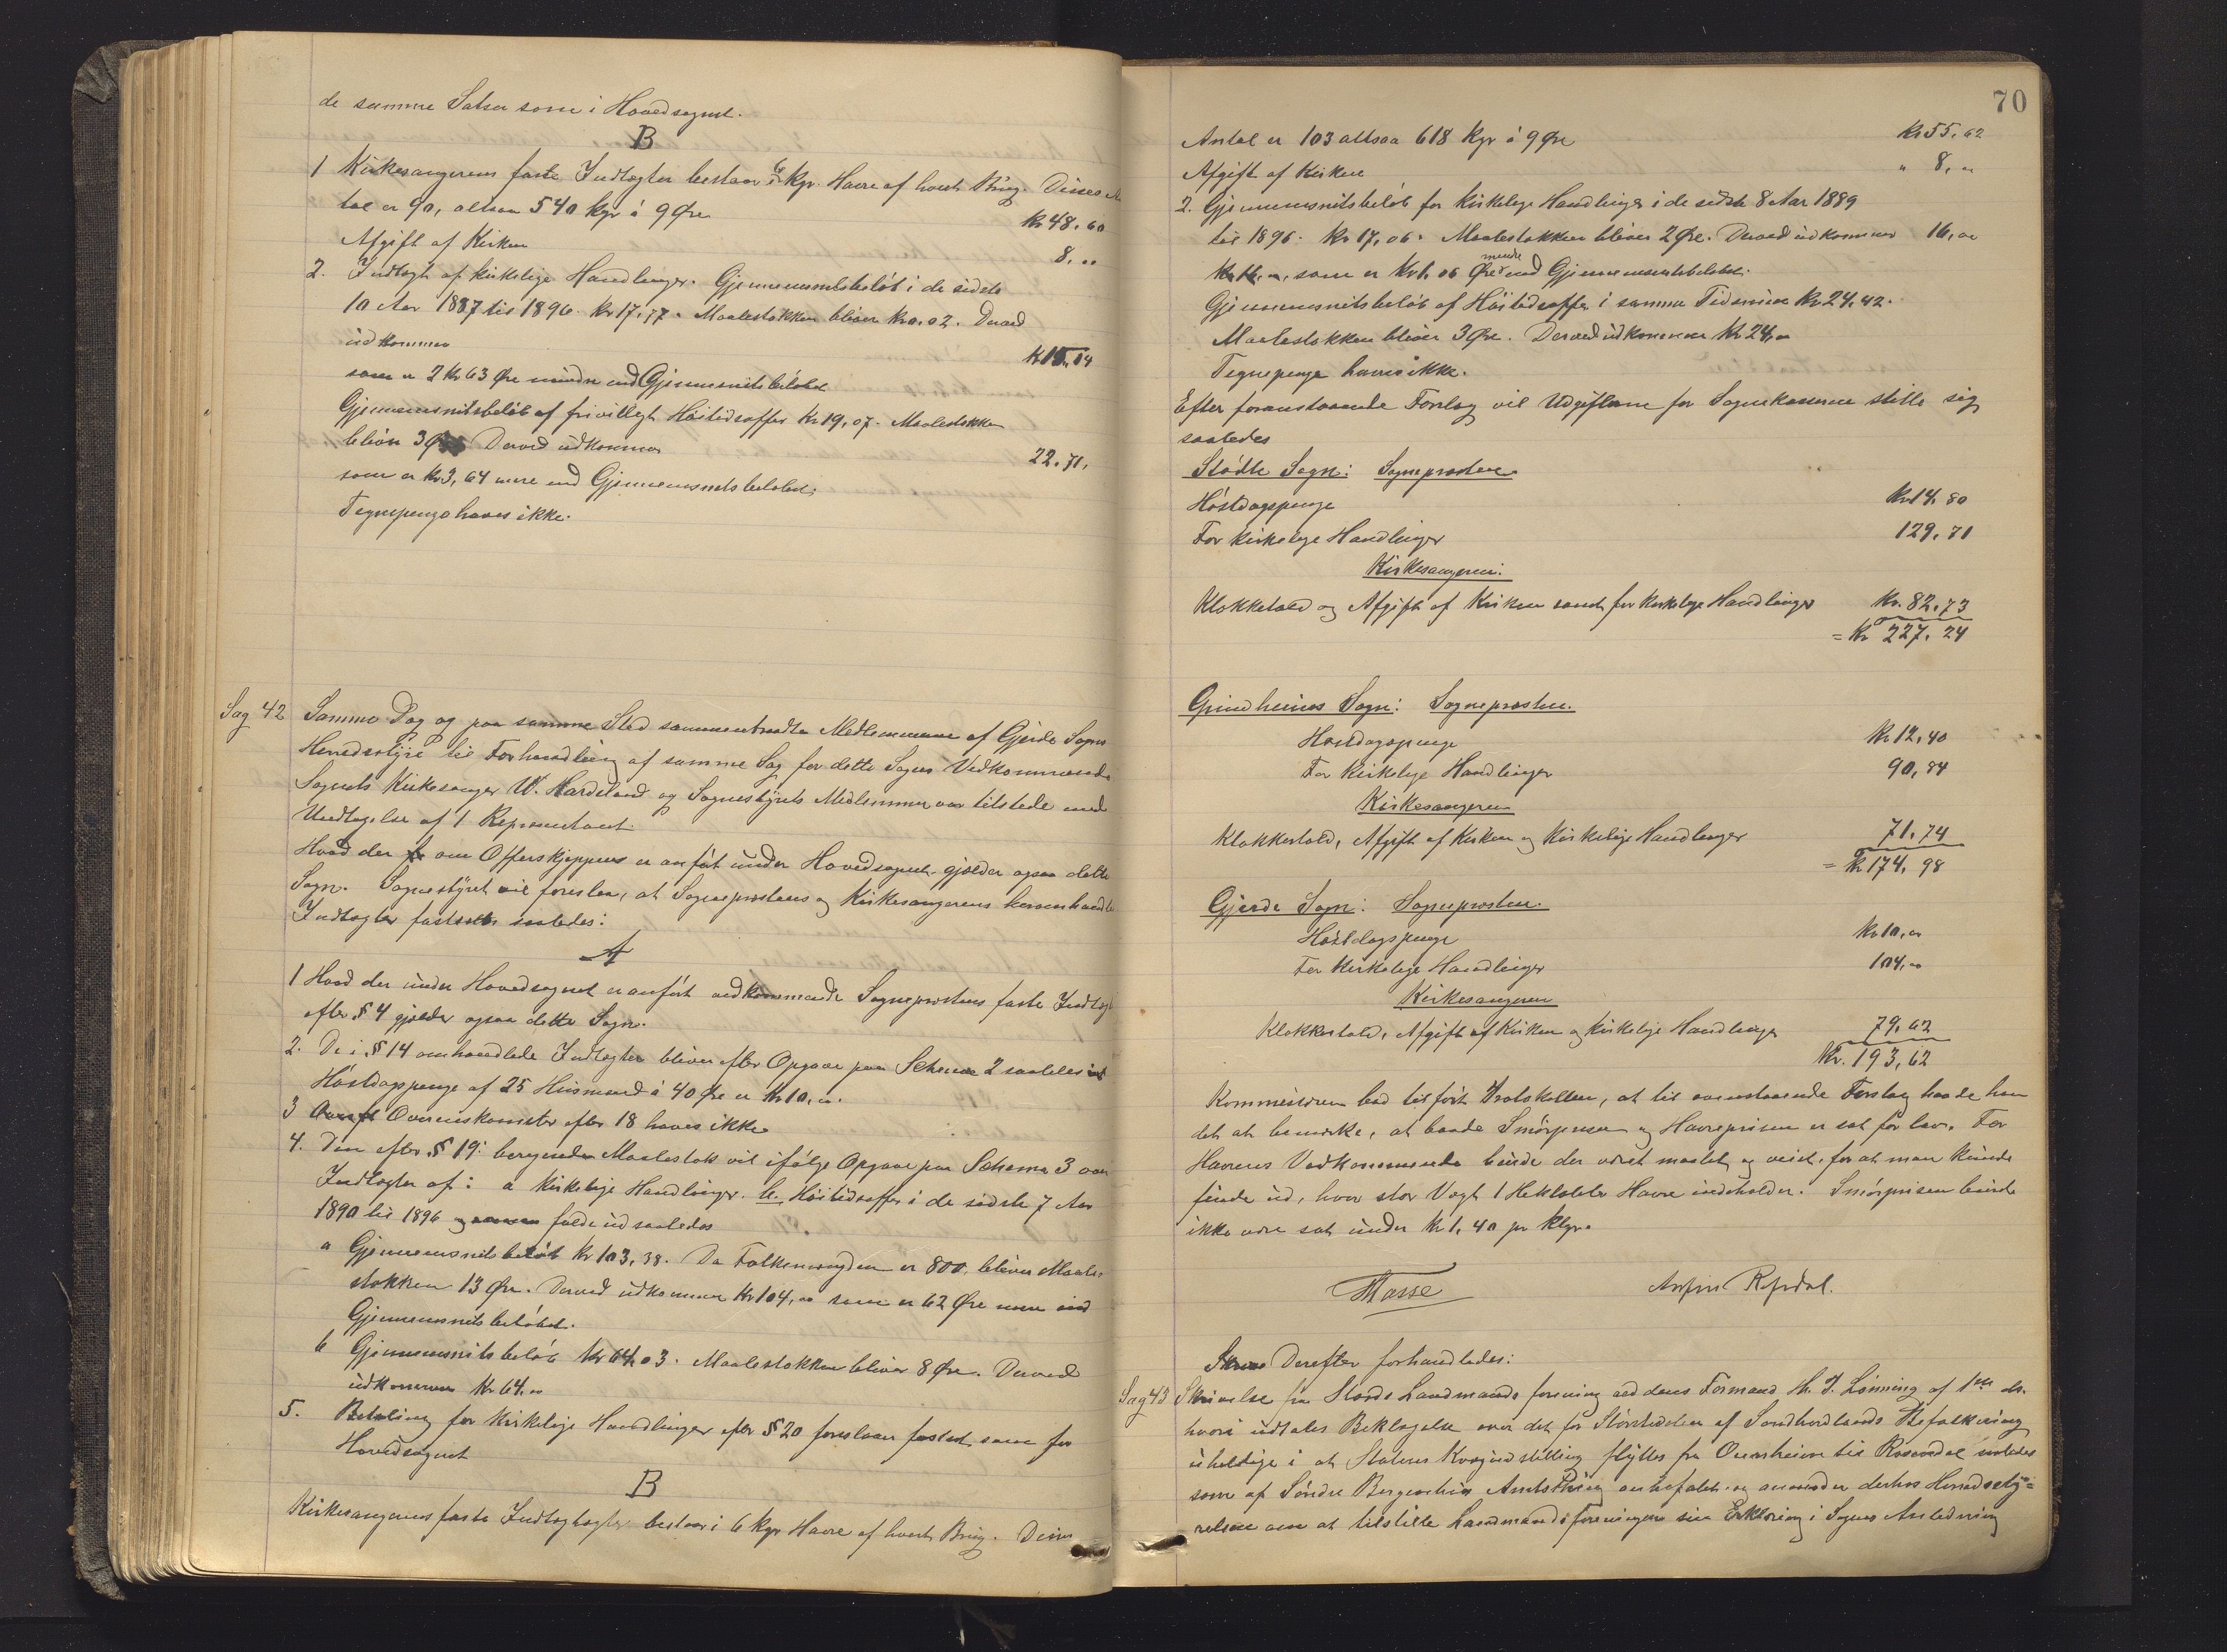 de samme Satser som i Hovedsognet.
B
1 Kirkesangerens faste Indtægter bestaar i 6 kgr. Havre af hvert Brug. Disses An
tal er 90, altsaa 540 kgr á 9 Øre Kr 48,60
Afgift af Kirken 8,00
2. Indtægt af kirkelige Handlinger. Gjennemsnitsbeløb i de sidste
10 Aar 1887 til 1896 Kr 17,77. Maalestokken bliver Kr 0.02. Derved
udkommer Kr 15,14
som er 2 Kr 63 Øre mindre end Gjennemsnitsbeløbet
Gjennemsnitsbeløb af frivilligt Høitidsoffer Kr 19,07. Maalestokken
bliver 3 Øre Derved udkommer 22.71,
som er Kr 3,64 mere end Gjennemsnitsbeløbet.
Tegnepenge haves ikke.
Sag 42 Samme Dag og paa samme Sted sammentraadte Medlemmerne af Gjerde Sogns
Herredsstyre til Forhandling af samme Sag for dette Sogns Vedkommende
Sognets Kirkesanger W. Hardeland og Sognestyrets Medlemmer var tilstede med
Undtagelse af 1 Repræsentant.
Hvad der om Offerskjeppen er anført under Hovedsognet gjælder ogsaa dette
Sogn. Sognestyret vil foreslaa, at Sogneprestens og Kirkesangerens
Indtægter fastsættes saaledes:
A
1 Hvad der under Hovedsognet er anført vedkommende Sogneprestens faste Indtægt
efter § 4 gjælder ogsaa dette Sogn.
2. De i § 14 omhandlede Indtægter bliver efter Opgave paa Schema 2 saaledes
Høstdagspenge af 25 Husmænd á 40 Øre er Kr 10,00.
3 Overenskomster efter 18 haves ikke
4. Den efter § 19 beregnede Maalestok vil ifølge Opgave paa Schema 3 over
Indtægter af: a kirkelige Handlinger. b. Høitidsoffer i de sidste 7 Aar
1890 til 1896 falde ud saaledes
a Gjennemsnitsbeløb Kr 103,38. Da Folkemængden er 800, bliver Maale-
stokken 13 Øre. Derved udkommer Kr 104,00 som er 62 Øre mere end
Gjennemsnitsbeløbet.
b Gjennemsnitsbeløb Kr 64,03. Maalestokken bliver 8 Øre. Derved
udkommer Kr 64,00
5. Betaling for kirkelige Handlinger efter § 20 foreslaaes fastsat som for
Hovedsognet
B
Kirkesangerens faste Indtægter bestaar i 6 kgr Havre af hvert Brug. Disses
70
Antal er 103 altsaa 618 kgr á 9 Øre Kr 55,62
Afgift af Kirken " 8, "
2. Gjennemsnitsbeløb for kirkelige Handlinger i de sidste 8 Aar 1889
til 1896. Kr 17,06. Maalestokken bliver 2 Øre. Derved udkommer 16,00
som er Kr 1.06 Øre mindre end Gjennemsnitsbeløbet.
Gjennemsnitsbeløb af Høitidsoffer i samme Tidsrum Kr 24,42.
Maalestokken bliver 3 Øre. Derved udkommer Kr 24,00
Tegnepenge haves ikke.
Efter foranstaaende Forslag vil Udgifterne for Sognekasserne stille sig
saaledes
Stødle Sogn: Sognepresten
Høstdagspenge Kr 14,80
For kirkelige Handlinger 129,71
Kirkesangeren.
Klokketold og Afgift af Kirken samt for kirkelige Handlinger Kr. 82,73
= Kr 227,24
Grindheims Sogn: Sognepresten.
Høstdagspenge Kr 12,40
For kirkelige Handlinger 90,84
Kirkesangeren
Klokkertold, Afgift af Kirken og kirkelige Handlinger 71,74
= Kr 174,98
Gjerde Sogn: Sognepresten.
Høstdagspenge Kr 10,00
For kirkelige Handlinger 104,00
Kirkesangeren
Klokkertold, Afgift af Kirken og kirkelige Handlinger 79,62
Kr. 193,62
Kommissionen bad tilført Protokollen, at til ovenstaaende Forslag havde han
det at bemærke, at baade Smørprisen og Havreprisen er sat for lav. For
Havrens Vedkommende burde der været maalt og veiet, for at man kunde
finde ud, hvor stor Vægt 1 Hektoliter Havre indeholder. Smørprisen burde
ikke være sat under Kr 1,40 pr klgr.
Hasse Anfin Refsdal.
Derefter forhandledes:
Sag 43 Skrivelse fra Stords Landmands forening ved dens Formand H. J. Lønning af 1ste ds.
hvori udtales Beklagelse over det for Størstedelen af Søndhordlands Befolkning
uheldige i at Statens Kvægudstilling flyttes fra Ovenheim til Rosendal saaledes
som af Søndre Bergenhus Amtsthing anbefalet og anmoder derhos Herredssty=
relsen om at tilstille Landmandsforeningen sin Erklæring i Sagens Anledning